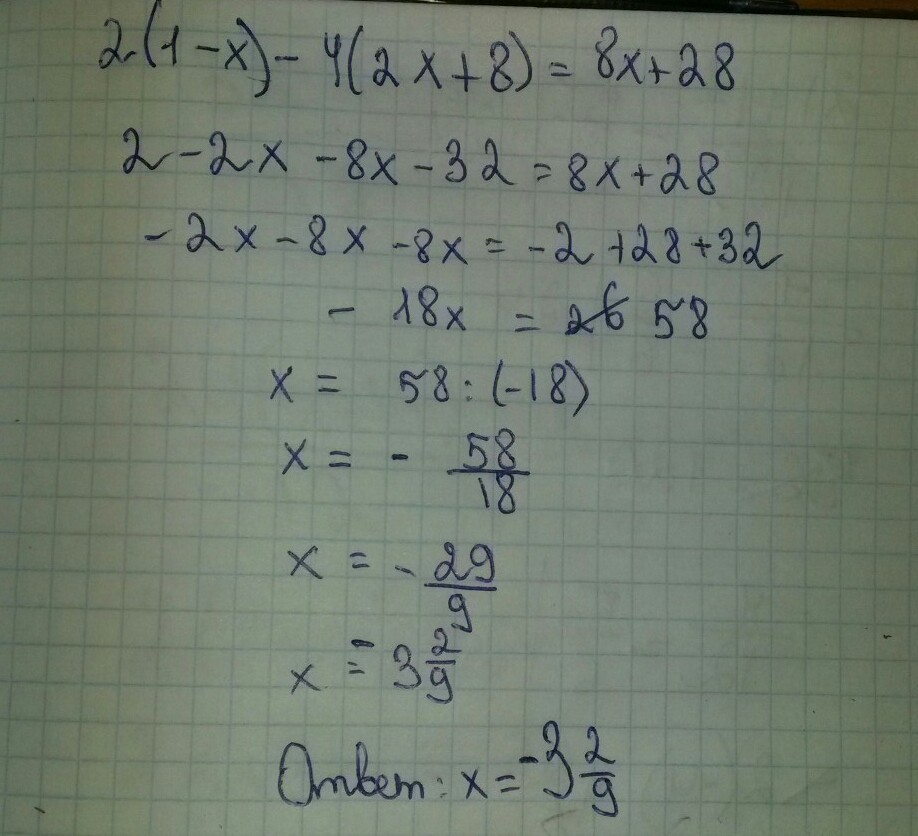 2(1-x)-4(2x+8)=8x+28
2-2x-8x-32=8x+28
-2x-8x-8x=-2+28+32
-18x=26 58
x=58:(-18)
x=-58/18
x=-29/9
x=-3 2/9
Ответ: x=-3 2/9